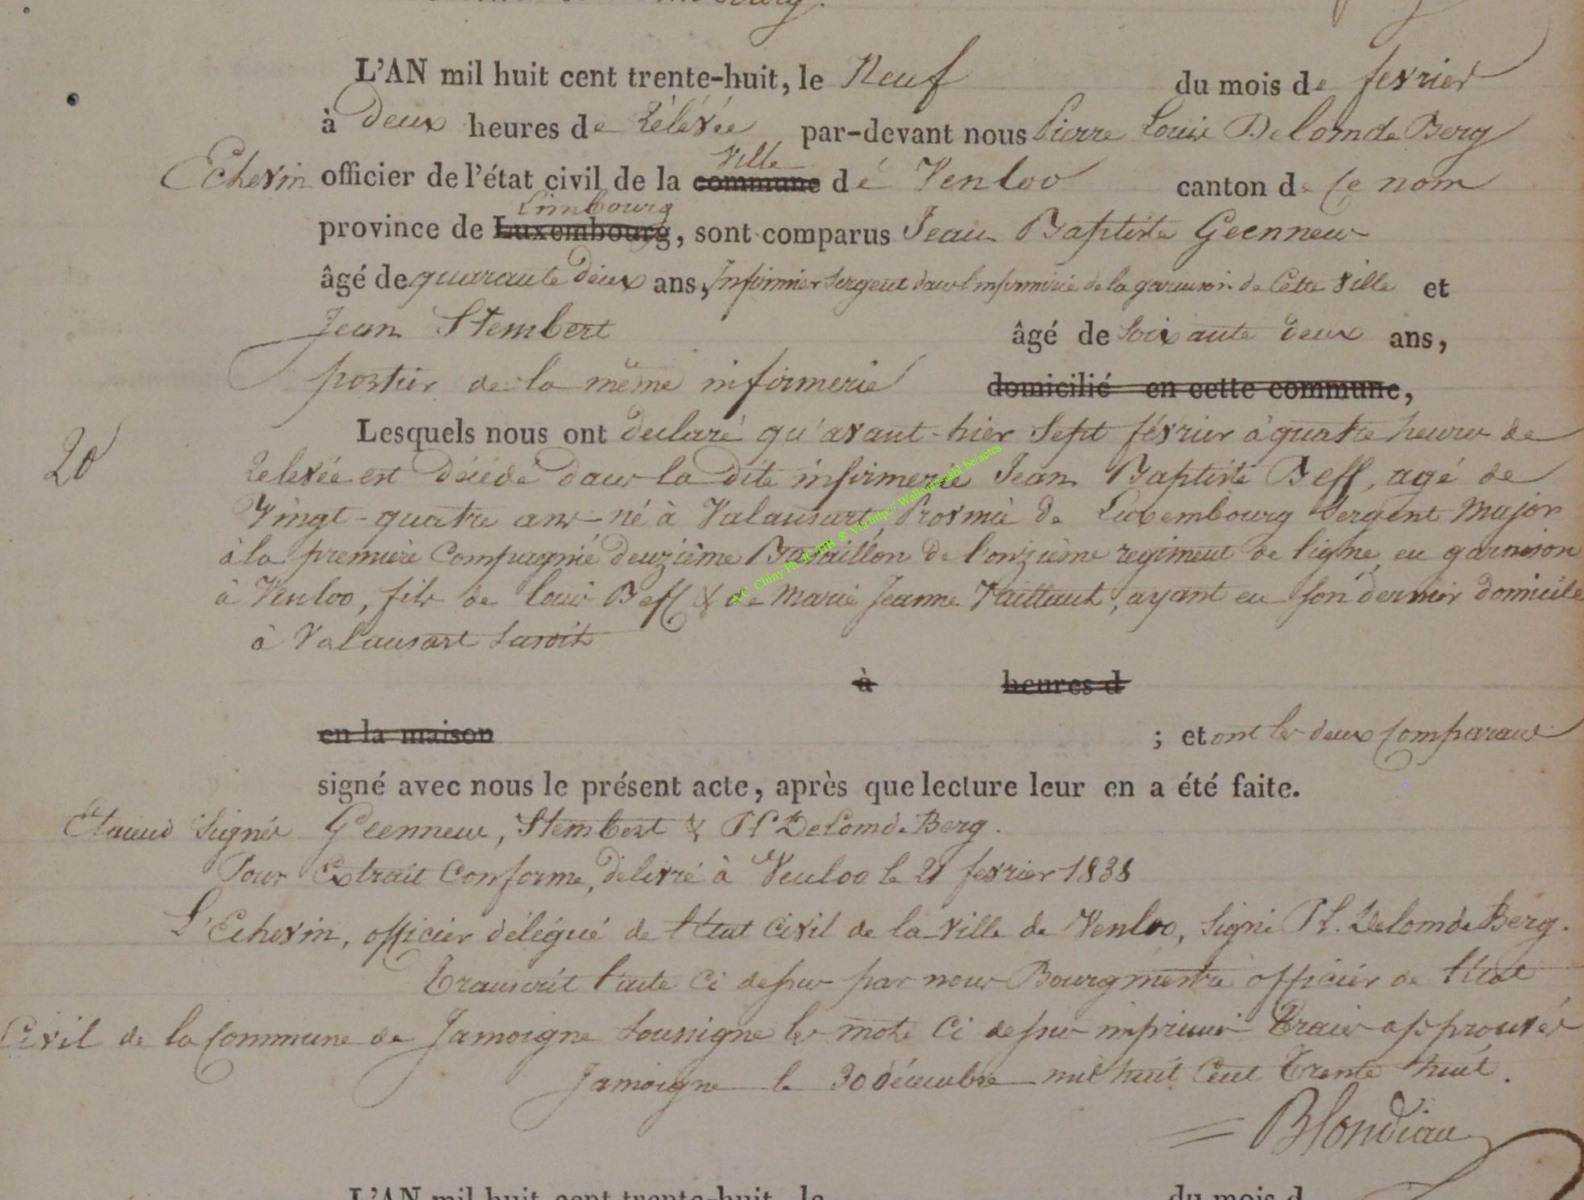 L'AN mil huit cent trente-huit, le Neuf du mois de fevrier
à Deux heures de Rélévée par-devant nous Pierre Louis Delomde Berg
Ville
Echevin officier de l'état civil de la commune dé Venloo canton de Ce nom
Limbourg
province de Luxembourg, sont comparus Jean Baptiste Geenneus
âgé de quarante deux ans, Infirmier Sergent dans l'infirmerie de la garnison de Cette ville et
Jean Stembert âgé de Soixante deux ans,
portier de la même infirmerie domicilié en cette commune,
20
Lesquels nous ont declaré qu'avant-hier Sept février à quatre heures de
Relevée est Décédé dans la dite infirmerie Jean Baptiste Beff, agé de
Vingt-quatre ans né à Valansart, Provinië de Luxembourg Sergent Major
à la premiere Compagnie deuzième Bataillon de l'onzième regiment de ligne, en garnison
à Venloo, fils de louis Beff & de Marie Jeanne Vaillant, ayant eu son dernier domicile
à Valansart Susdit
à heures d
en la maison ; et ont les deux Comparans
signé avec nous le présent acte, après que lecture leur en a été faite.
Etaient Signés Geenneus, Stembert & Pl Delomde Berg.
Pour Extrait Conforme, délivré à Venloo le 21 fevrier 1838
L'Echevin, officier délégué de l'Etat Civil de la ville de Venloo, Signé Pl. Delomde Berg.
Transcrit l'acte Ci dessus par nous Bourgmestre officier de l'état
Civil de la Commune de Jamoigne Soussigné les mots Ci dessus imprimés Traies approuvés
Jamoigne le 30 décembre mil huit Cent Trente huit.
Blondiau
L'AN mil huit cent trente-huit, le du mois d